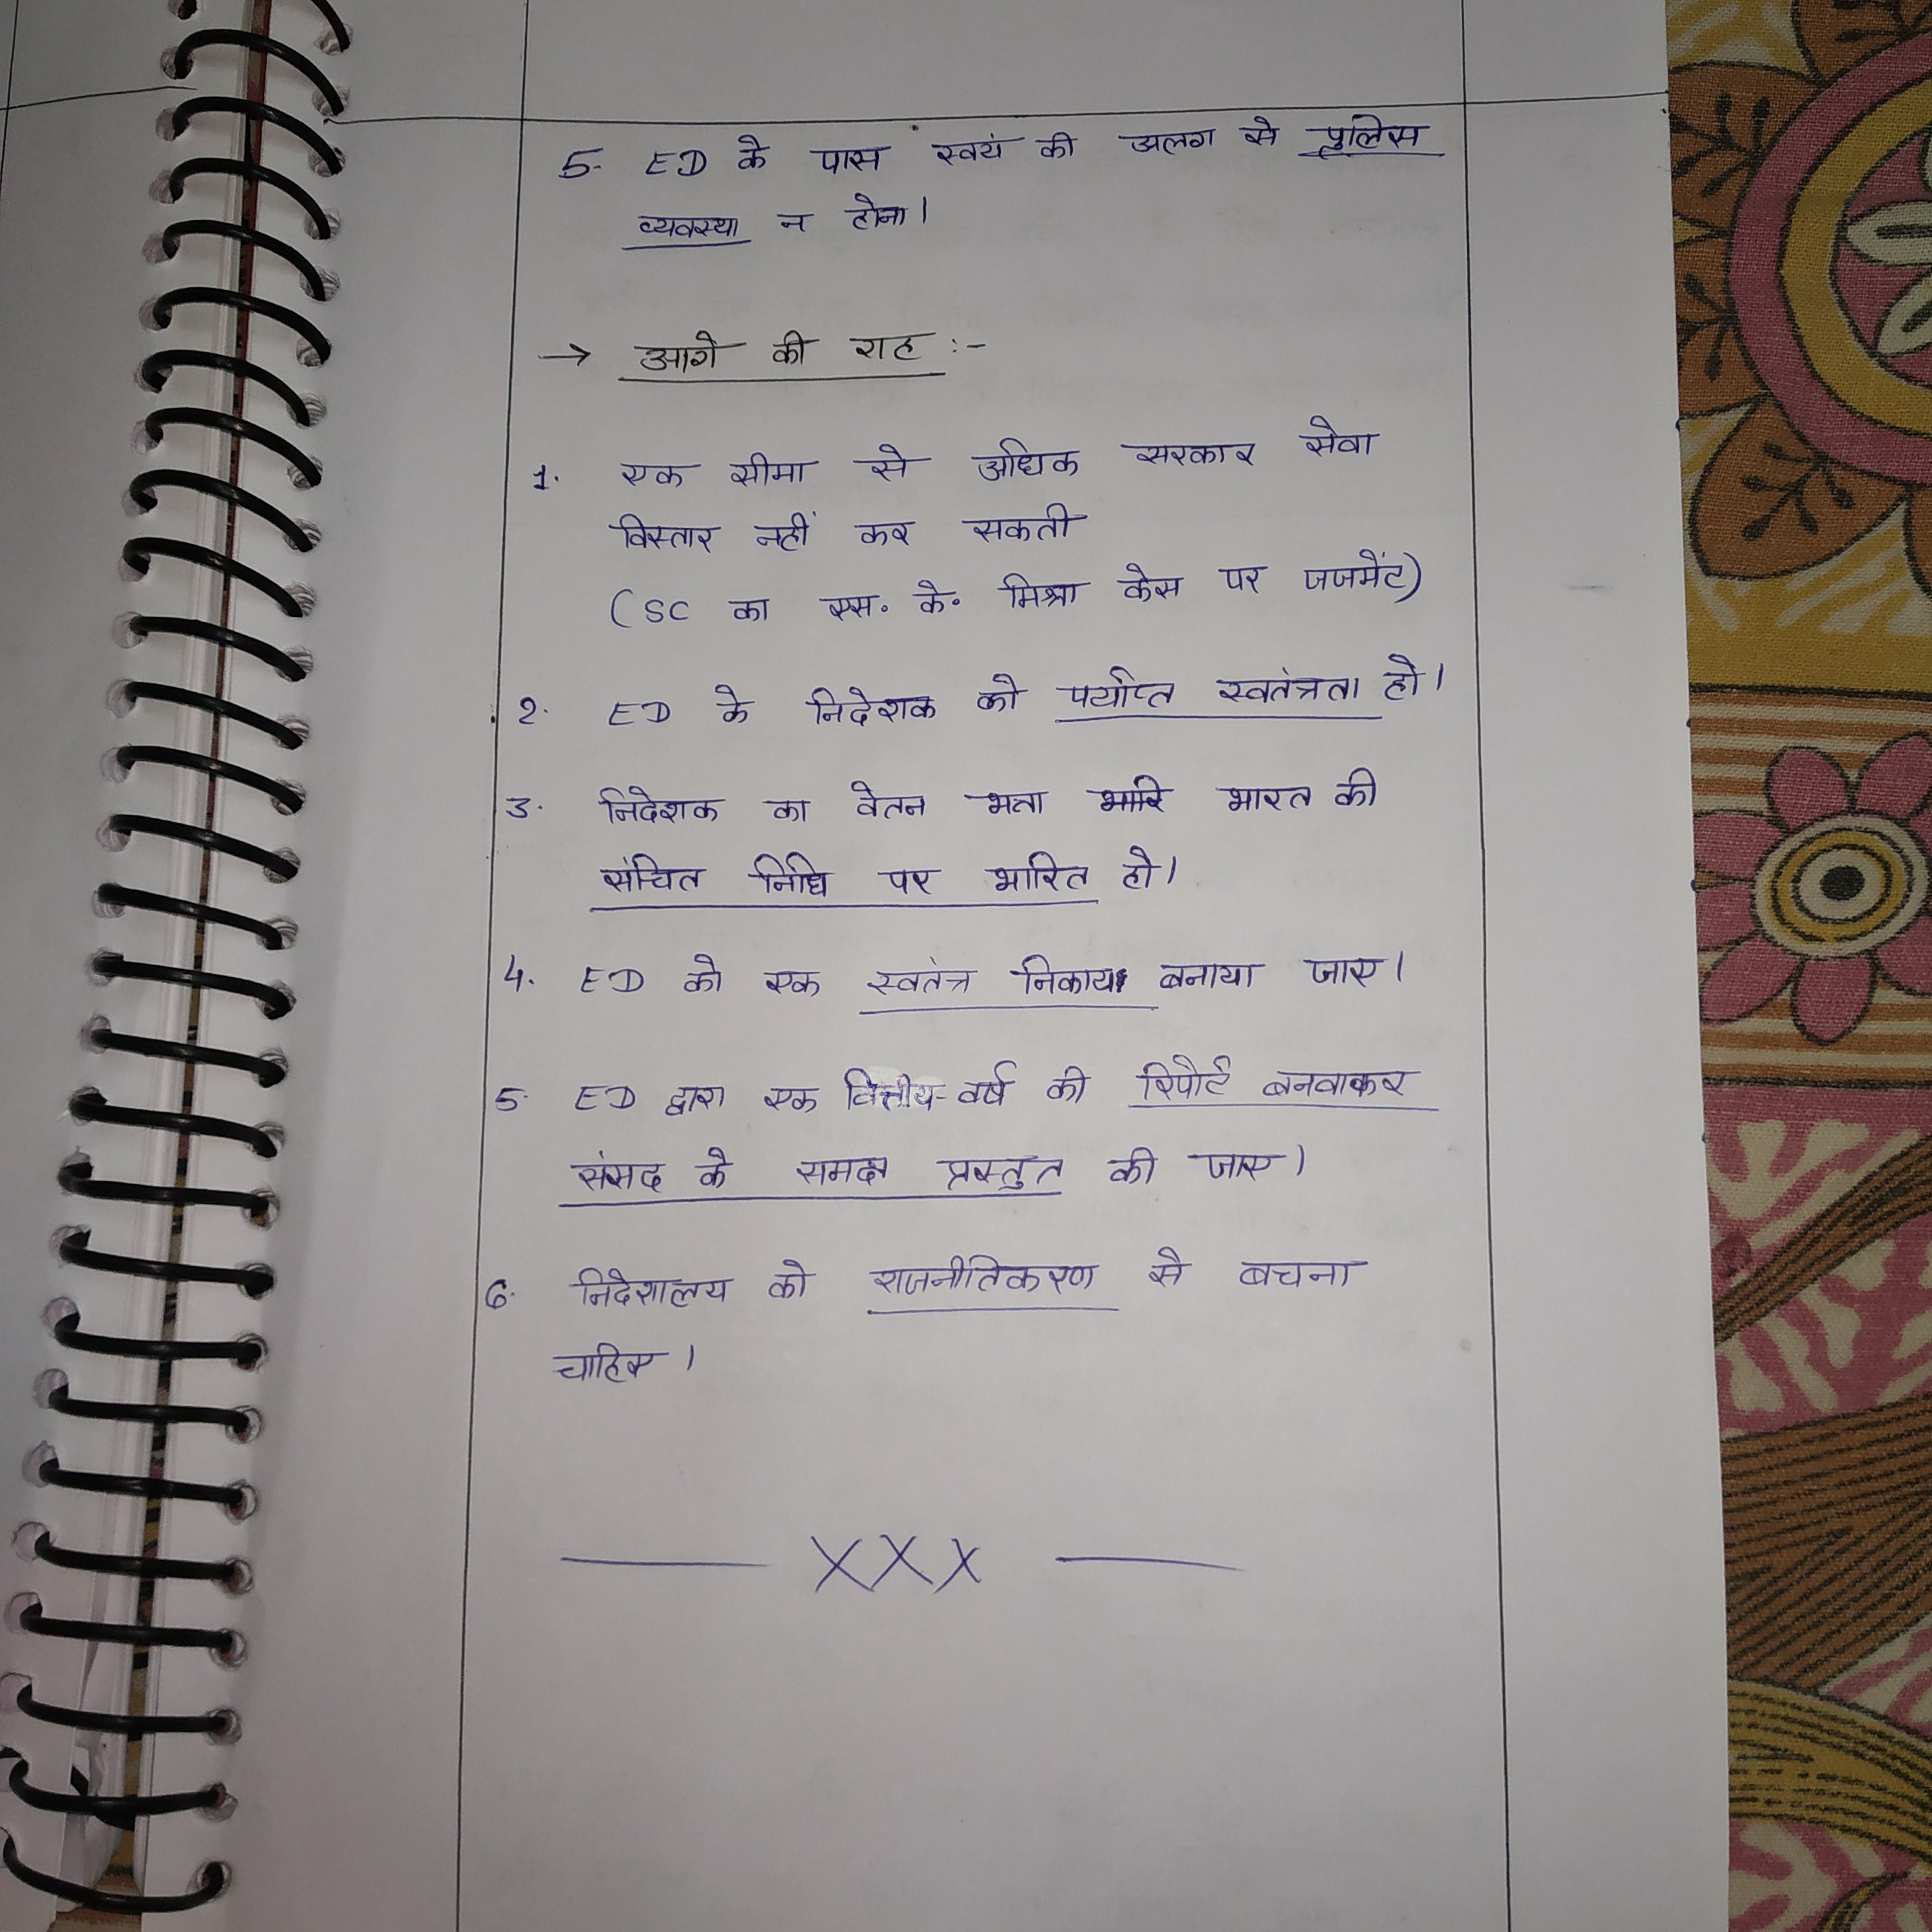 5. ED के पास स्वयं की अलग से पुलिस
व्यवस्था न होना।
→ आगे की राह :-
1. एक सीमा से अधिक सरकार सेवा
विस्तार नहीं कर सकती
(SC का एस. के. मिश्रा केस पर जजमेंट)
2. ED के निदेशक को पर्याप्त स्वतंत्रता हो।
3. निदेशक का वेतन भत्ता भारत की
संचित निधि पर भारित हो।
4. ED को एक स्वतंत्र निकाय बनाया जाए।
5. ED द्वारा एक वित्तीय-वर्ष की रिपोर्ट बनवाकर
संसद के समक्ष प्रस्तुत की जाए।
6. निदेशालय को राजनीतिकरण से बचना
चाहिए।
XXX